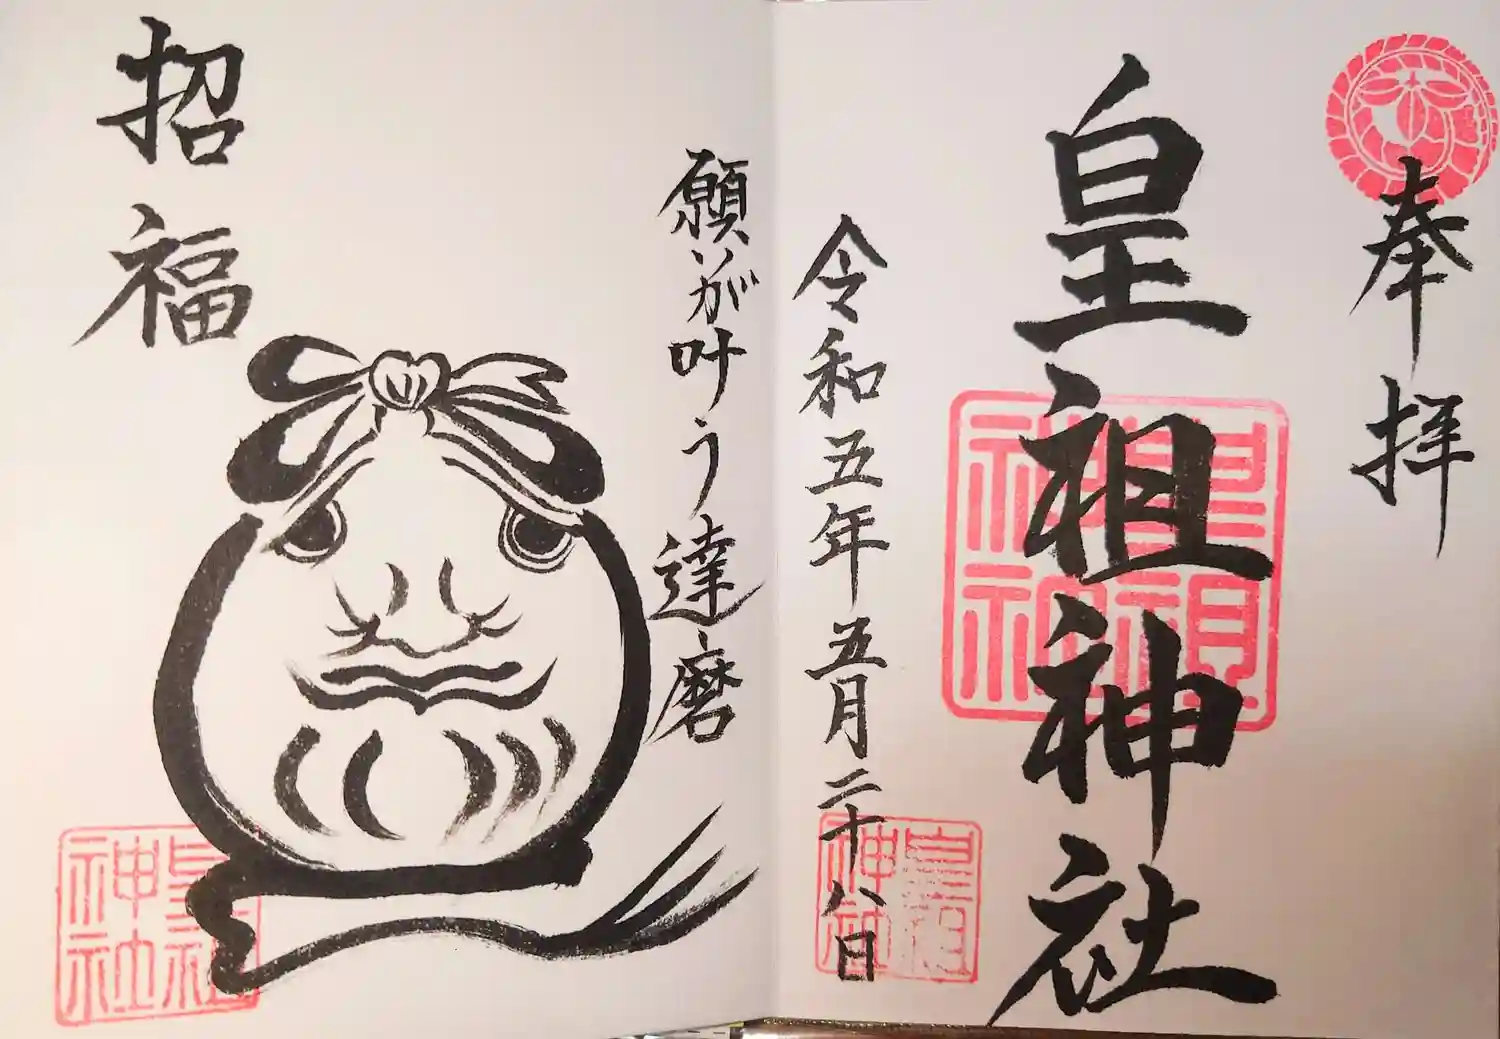 奉拝
皇祖神社
令和五年五月二十八日
願いが叶う達磨
招福
皇祖神社
皇祖神社
皇祖神社